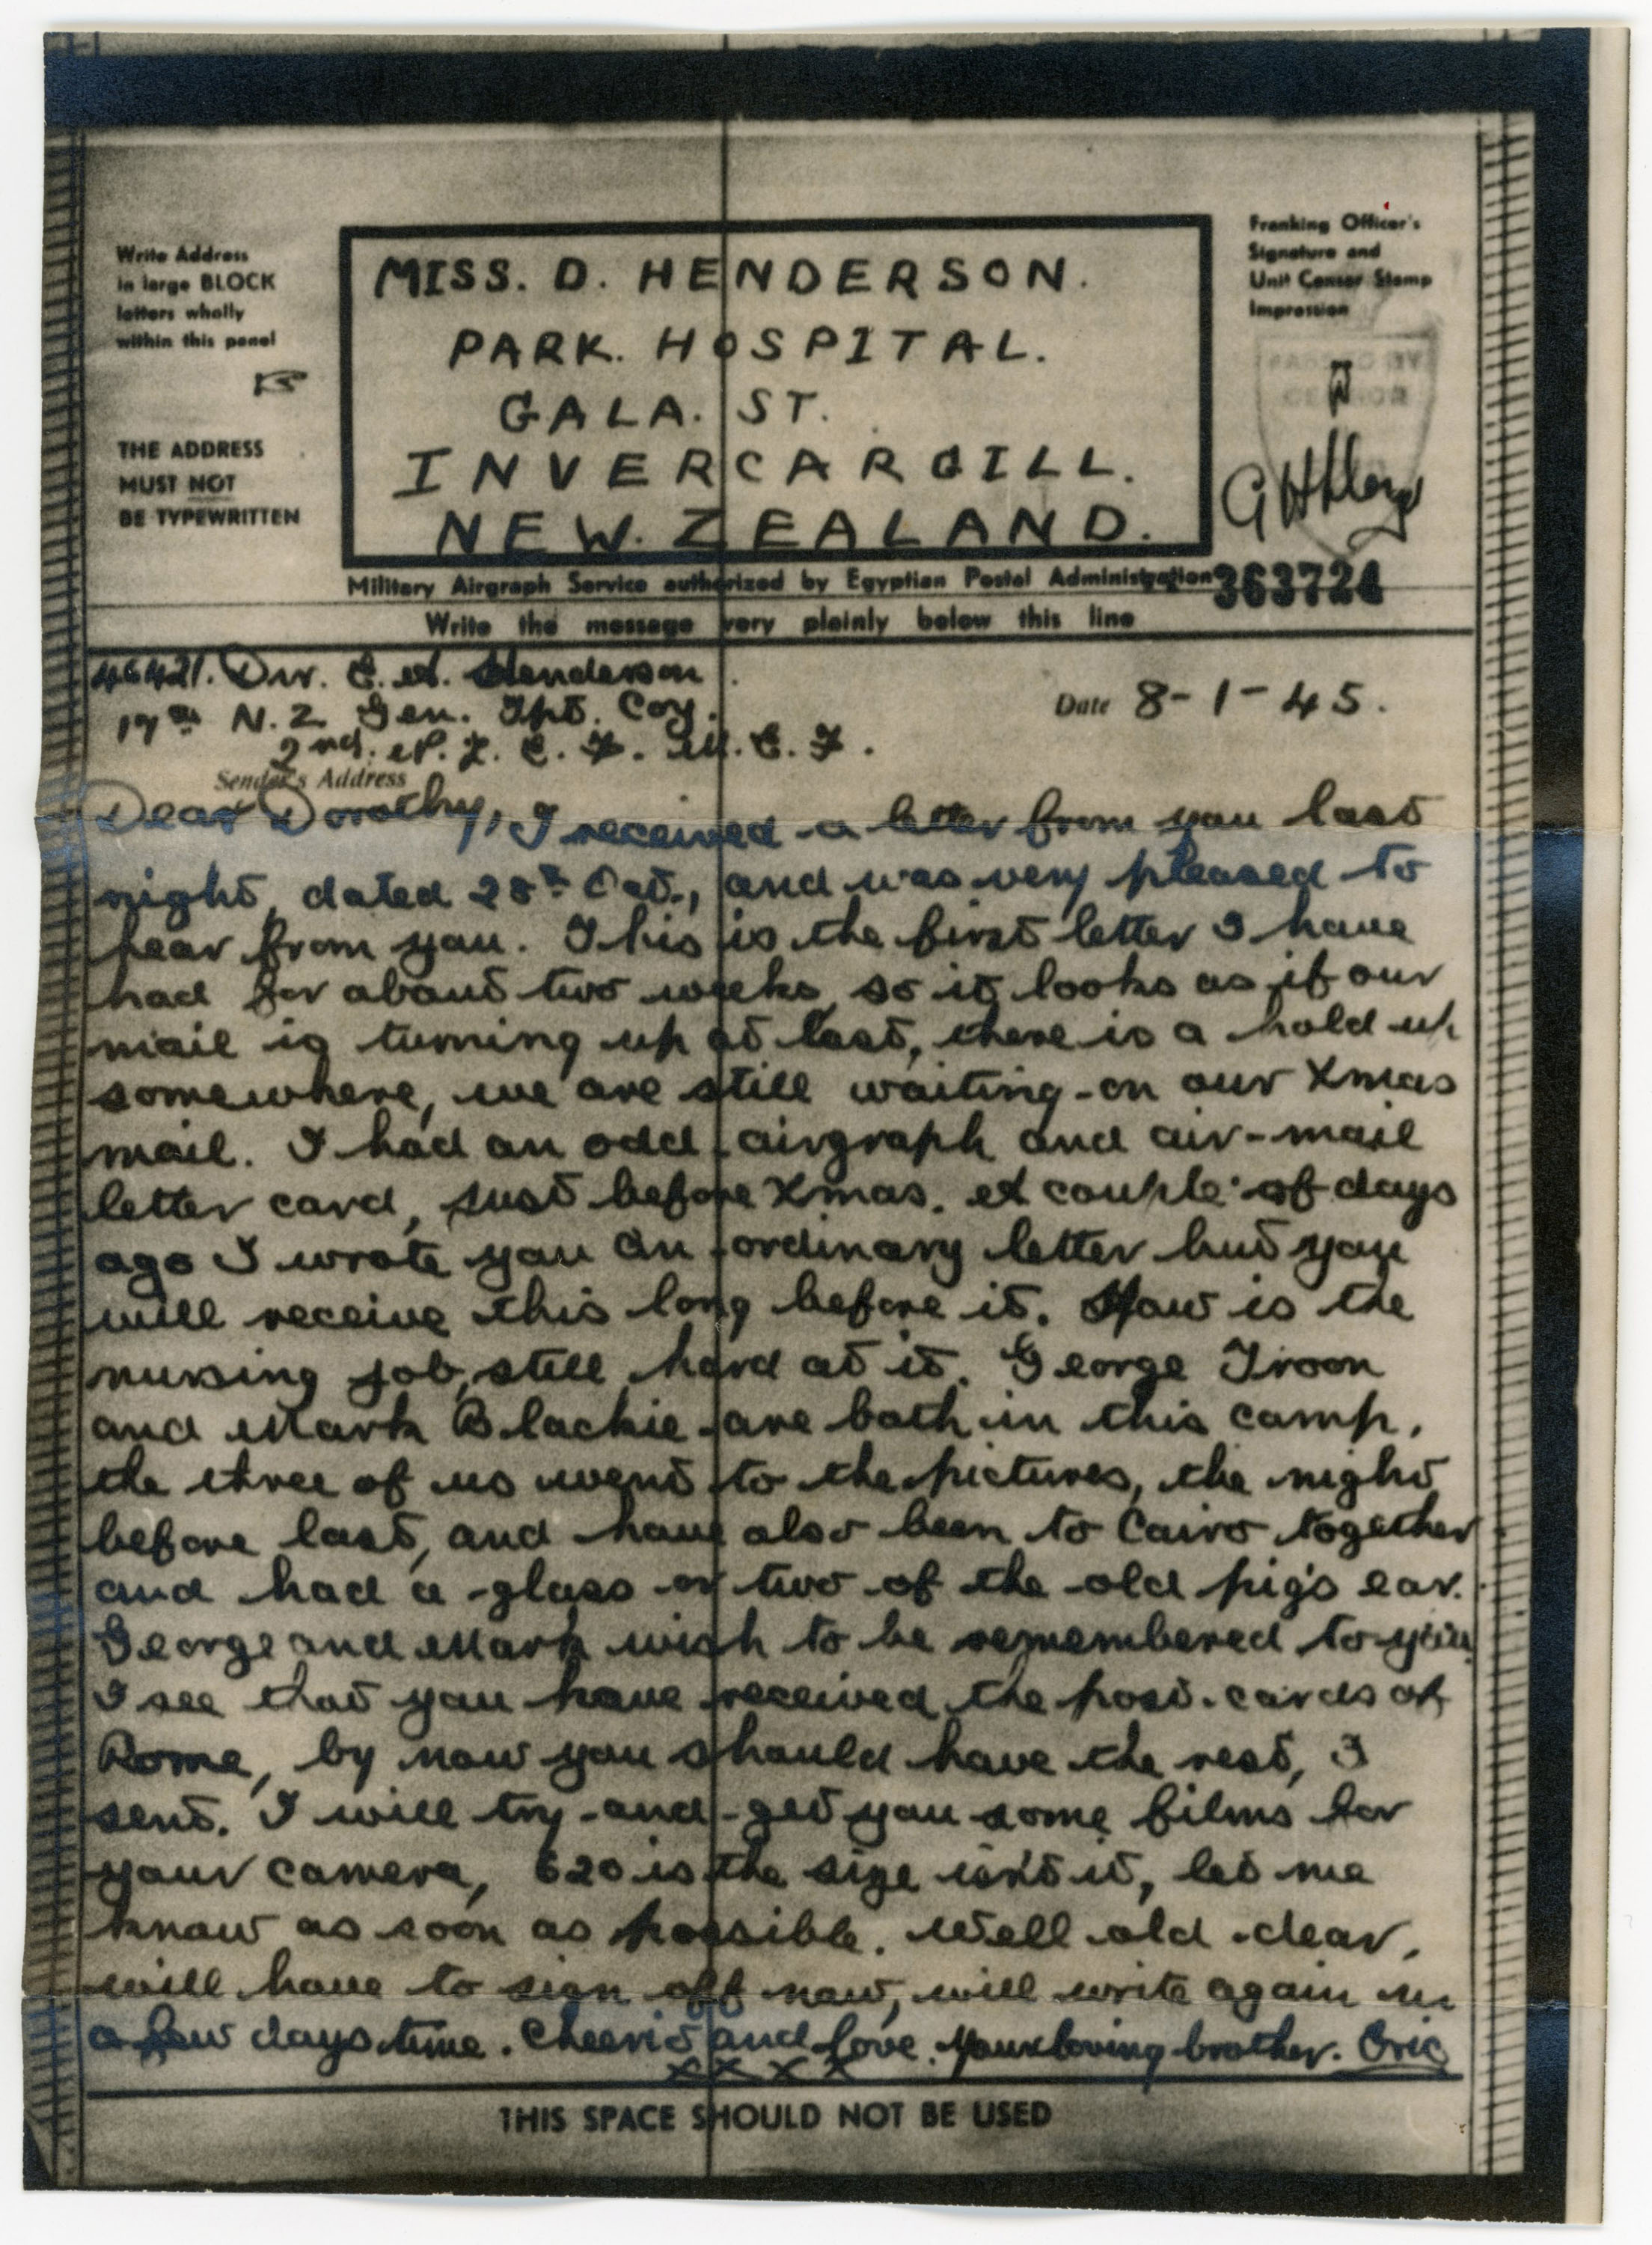 Write Address
in large BLOCK
letters wholly
within this panel
THE ADDRESS
MUST NOT
BE TYPEWRITTEN
MISS. D. HENDERSON.
PARK. HOSPITAL.
GALA. ST.
INVERCARGILL.
NEW. ZEALAND.
Franking Officer's
Signature and
Unit Censor Stamp
Impression
PASSED BY
CENSOR
Military Airgraph Service authorized by Egyptian Postal Administration
363724
Write the message very plainly below this line
46421. Dvr. E. A. Henderson
17th N. Z Gen. Tpt. Coy.
2nd. N. Z. E. F. M. E. F.
Sender's Address
Date 8-1-45.
Dear Dorothy, I received a letter from you last
night, dated 28th Oct., and was very pleased to
hear from you. This is the first letter I have
had for about two weeks, so it looks as if our
mail is turning up at last, there is a hold up
somewhere, we are still waiting on our Xmas
mail. I had an odd airgraph and air-mail
letter card, just before Xmas. A couple of days
ago I wrote you an ordinary letter but you
will receive this long before it. How is the
nursing job, still hard at it. George Troon
and Mark Blackie are both in this camp,
the three of us went to the pictures, the night
before last, and have also been to Cairo together
and had a glass or two of the old pig's ear.
George and Mark wish to be remembered to you.
I see that you have received the post-cards of
Rome, by now you should have the rest, I
sent. I will try and get you some films for
your camera, 620 is the size isn't it, let me
know as soon as possible. Well old dear,
will have to sign off now, will write again in
a few days time. Cheerio and love. Your loving brother. Eric
x x x x
THIS SPACE SHOULD NOT BE USED